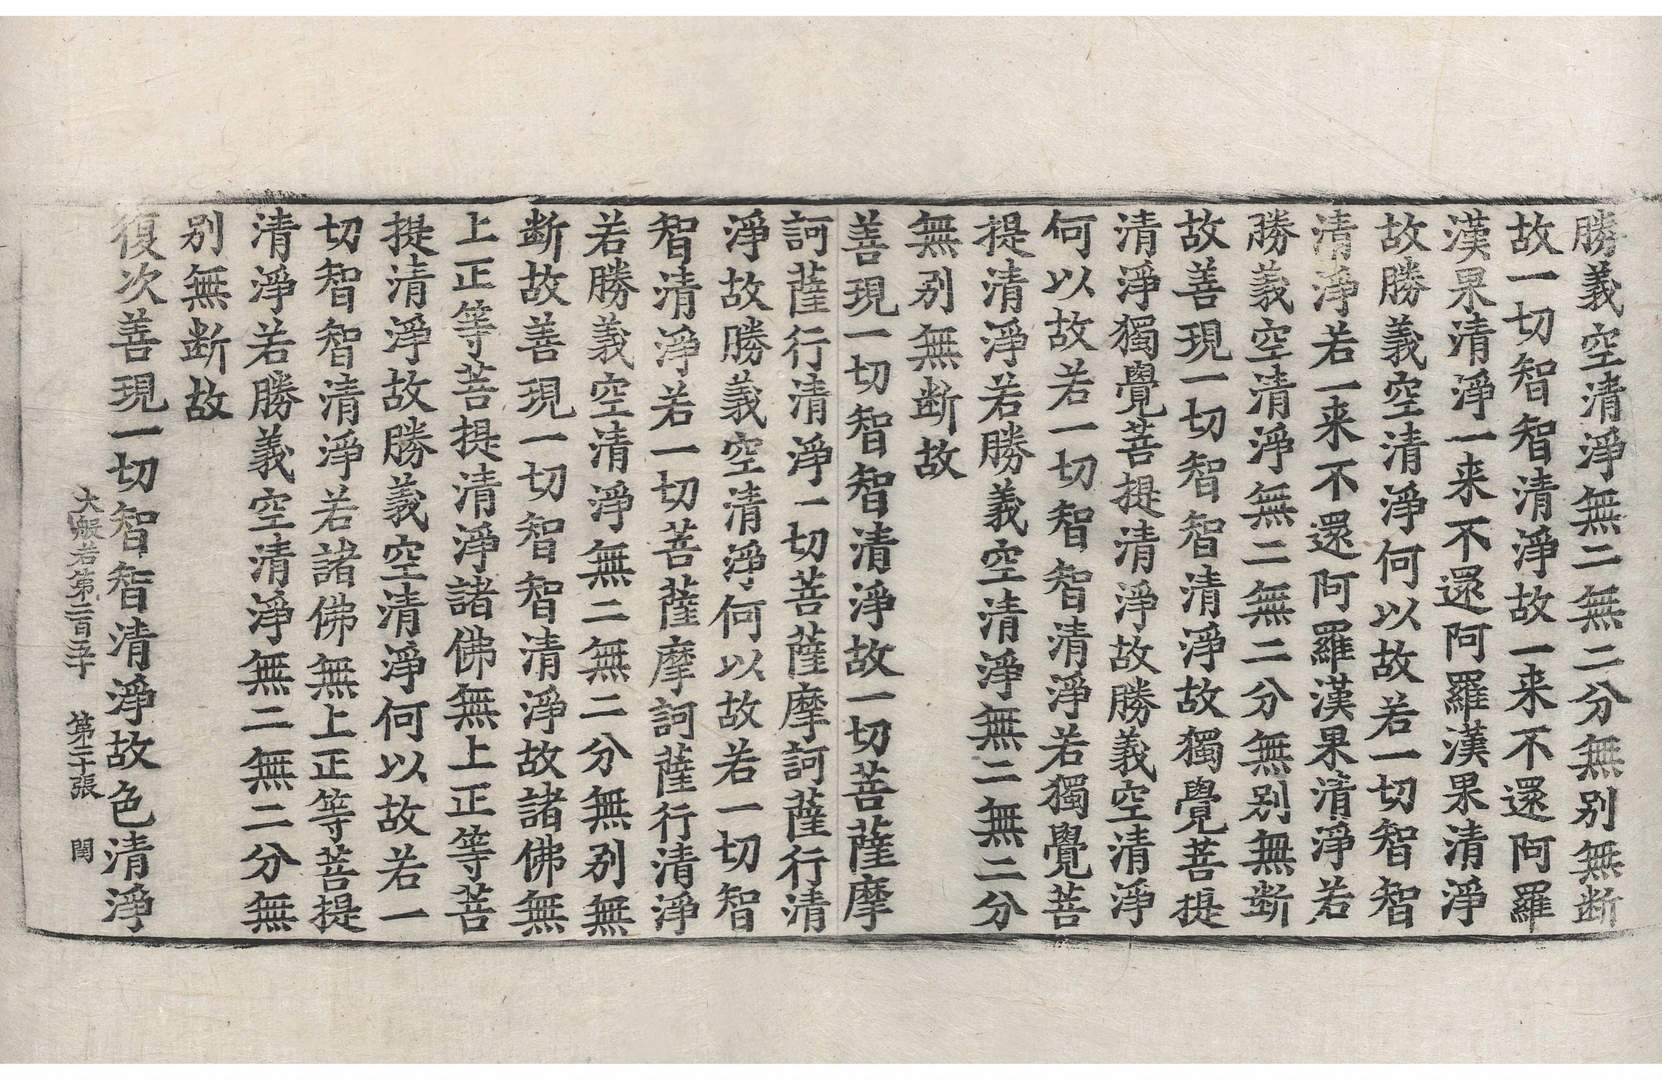 勝義空清淨無二無二分無別無斷
故一切智智清淨故一来不還阿羅
漢果清淨一来不還阿羅漢果清淨
故勝義空清淨何以故若一切智智
清淨若一来不還阿羅漢果清淨若
勝義空清淨無二無二分無別無斷
故善現一切智智清淨故獨覺菩提
清淨獨覺菩提清淨故勝義空清淨
何以故若一切智智清淨若獨覺菩
提清淨若勝義空清淨無二無二分
無別無斷故
善現一切智智清淨故一切菩薩摩
訶薩行清淨一切菩薩摩訶薩行清
淨故勝義空清淨何以故若一切智
智清淨若一切菩薩摩訶薩行清淨
若勝義空清淨無二無二分無別無
斷故善現一切智智清淨故諸佛無
上正等菩提清淨諸佛無上正等菩
提清淨故勝義空清淨何以故若一
切智智清淨若諸佛無上正等菩提
清淨若勝義空清淨無二無二分無
別無斷故
復次善現一切智智清淨故色清淨
大般若第二百五十 第二十張 閏